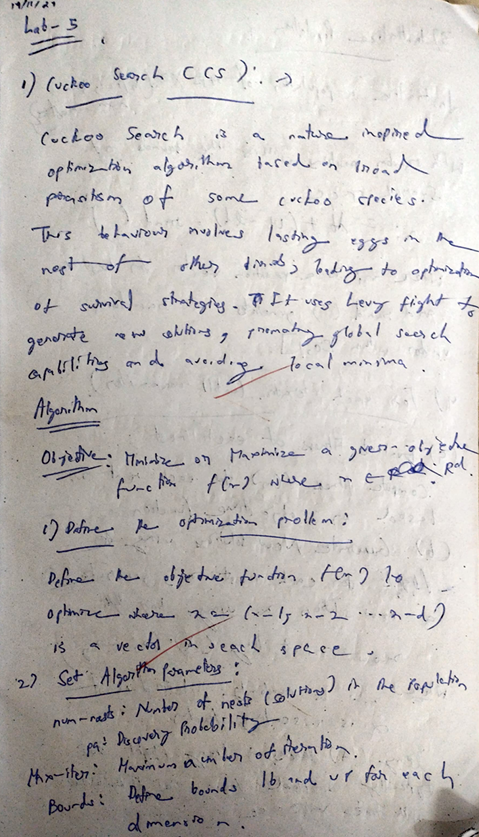 19/11/24
Lab-5
1) Cuckoo Search (CS): →
Cuckoo Search is a nature inspired
optimization algorithm based on broad
parasitism of some cuckoo species.
This behaviour involves lasting eggs in the
nest of other birds, leading to optimization
of survival strategies. It uses Levy flight to
generate new solutions, promoting global search
capabilities and avoiding local minima.
Algorithm
Objective: Minimize or Maximize a given objective
function f(x) where x ∈ Rd.
1) Define the optimization problem:
Define the objective function f(x) to
optimize where x = (x-1, x-2 ... x-d)
is a vector in search space.
2) Set Algorithm Parameters:
num-nests: Number of nests (solutions) in the population
pa: Discovery Probability
Max-iter: Maximum number of iteration.
Bounds: Define bounds lb and ub for each
dimension.